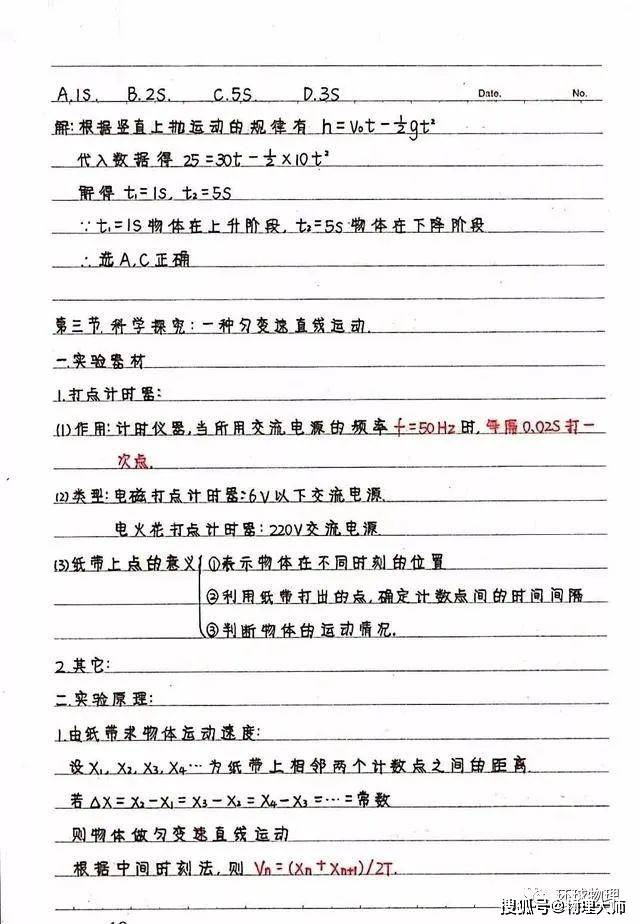 A.1S. B.2S. C.5S. D.3S Date. No.
解:根据竖直上抛运动的规律有 h=V₀t-½gt²
代入数据得 25=30t-½×10t²
解得 t₁=1S, t₂=5S
∵t₁=1S物体在上升阶段, t₂=5S物体在下降阶段
∴选A,C正确
第三节.科学探究:一种匀变速直线运动.
一.实验器材
1.打点计时器:
(1)作用:计时仪器,当所用交流电源的频率f=50Hz时,每隔0.02S打一
次点.
(2)类型:电磁打点计时器:6V以下交流电源.
电火花打点计时器:220V交流电源.
(3)纸带上点的意义{①表示物体在不同时刻的位置
②利用纸带打出的点,确定计数点间的时间间隔
③判断物体的运动情况.
2.其它:
二.实验原理:
1.由纸带求物体运动速度:
设X₁,X₂,X₃,X₄…为纸带上相邻两个计数点之间的距离.
若△X=X₂-X₁=X₃-X₂=X₄-X₃=…=常数
则物体做匀变速直线运动
根据中间时刻法,则 Vn=(Xn+Xn+1)/2T.
环球物理
搜狐号@物理大师